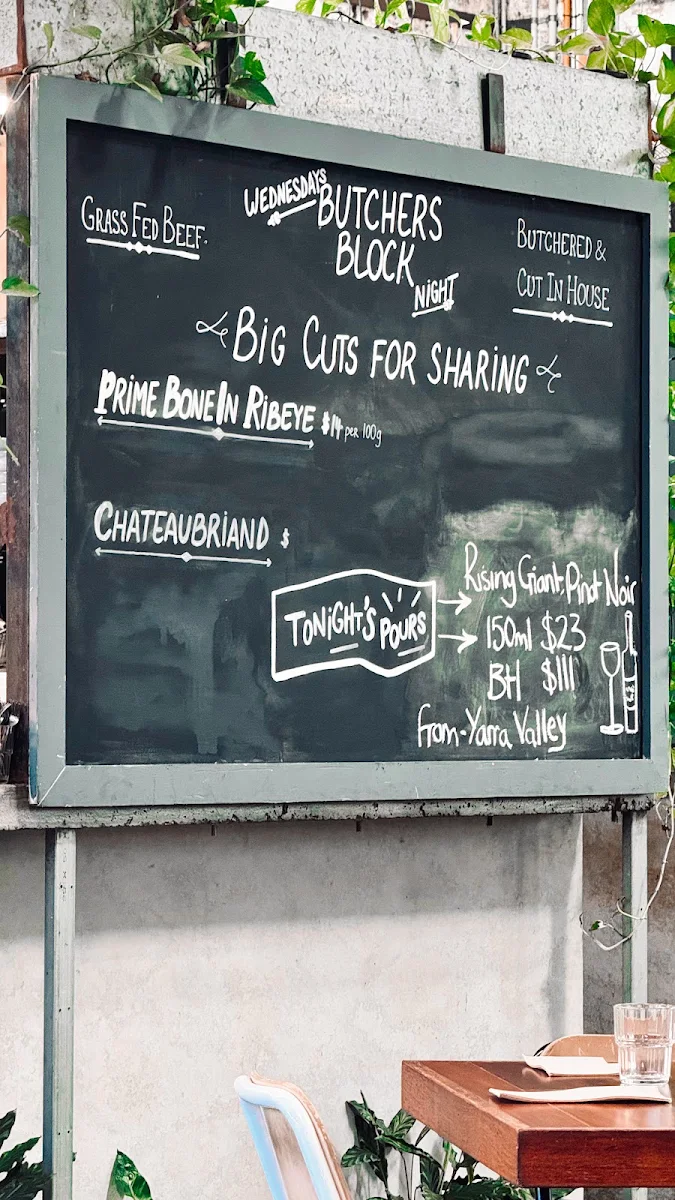 WEDNESDAYS
BUTCHERS
BLOCK
NIGHT
GRASS FED BEEF.
BUTCHERED &
CUT IN HOUSE
BIG CUTS FOR SHARING
PRIME BONE IN RIBEYE $14 per 100g
CHATEAUBRIAND $
TONIGHT'S POURS
Rising Giant, Pinot Noir
150ml $23
Btl $111
From - Yarra Valley